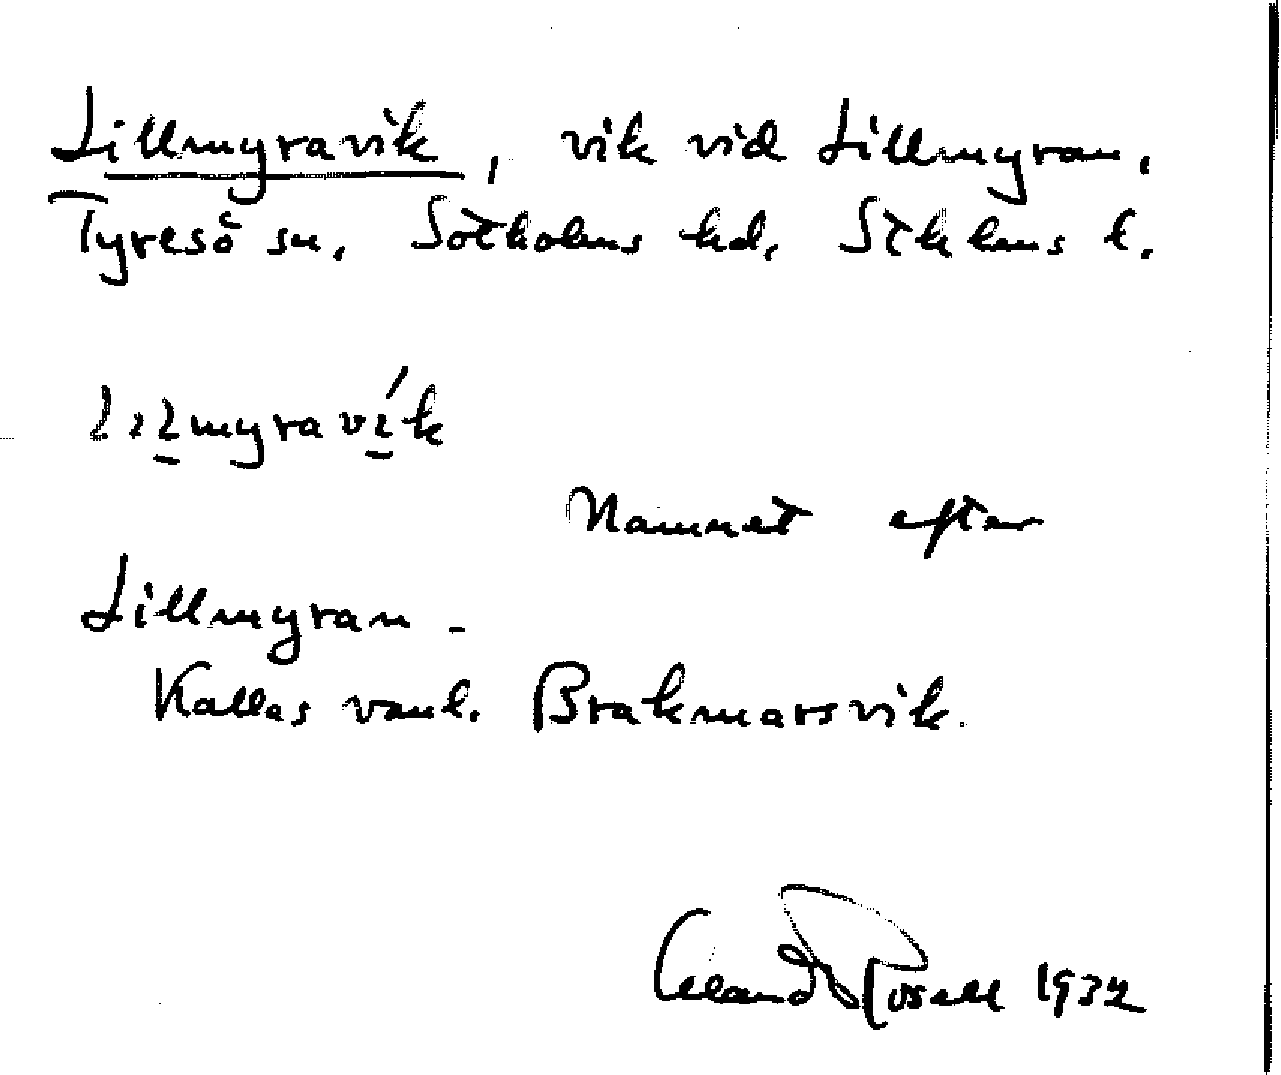 Lillmyravik, vik vid Lillmyran.
Tyresö sn. Sotholms hd. Sthlms l.
Namnet efter
Lillmyran.
Kallas vanl. Brakmarsvik.
Rosell 1932